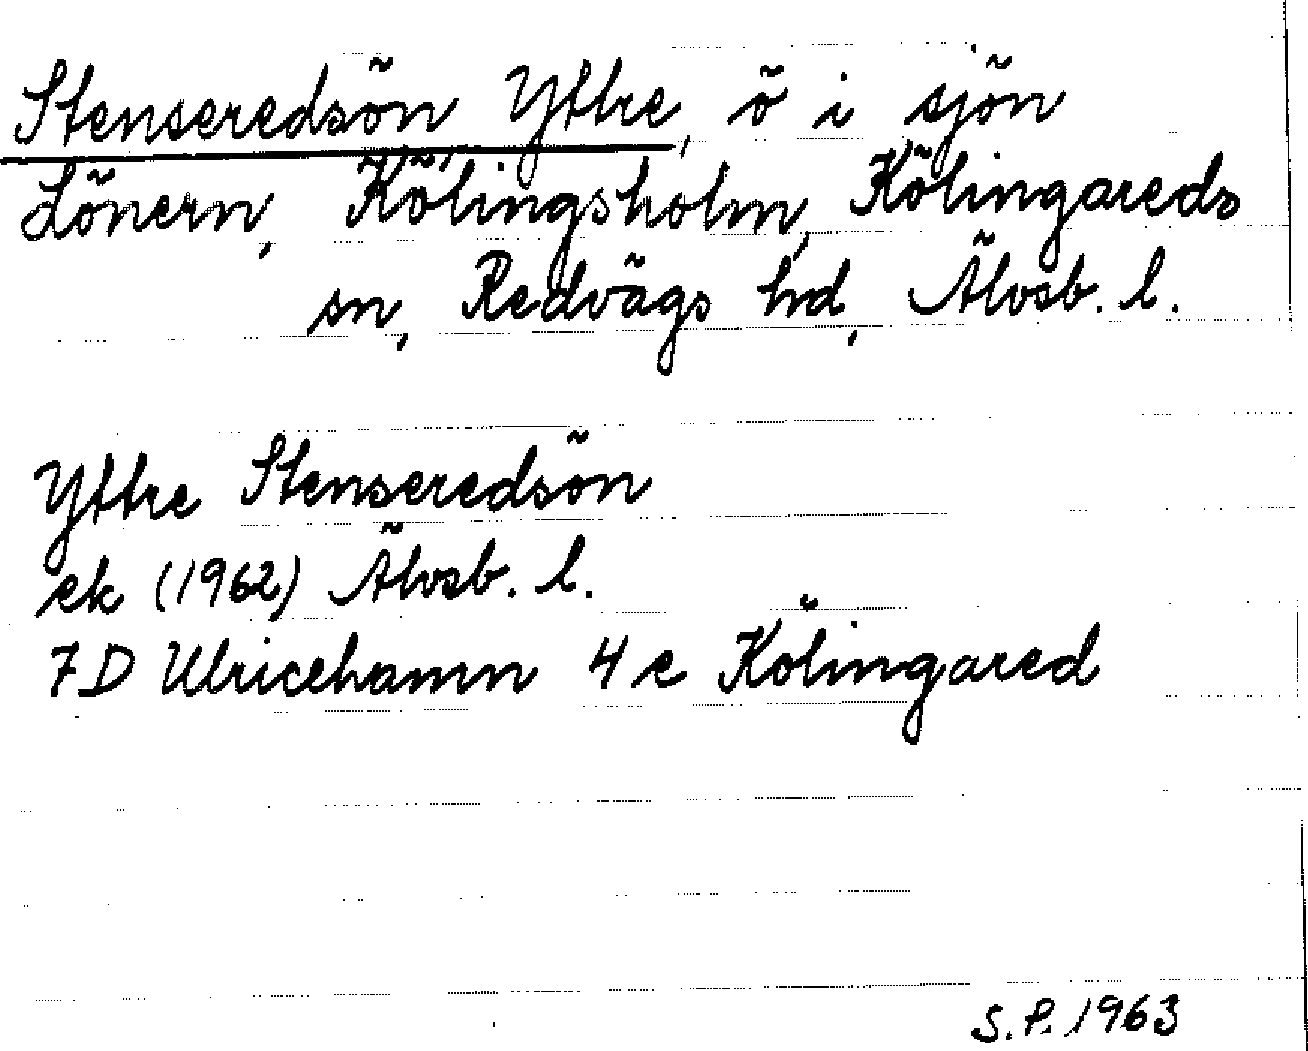 Stenseredsön Yttre, ö i sjön
Lönern, Kölingsholm, Kölingareds
sn, Redvägs hd, Älvsb. l.
Yttre Stenseredsön
ek (1962) Älvsb. l.
7D Ulricehamn 4 e Kölingared
S.P. 1963